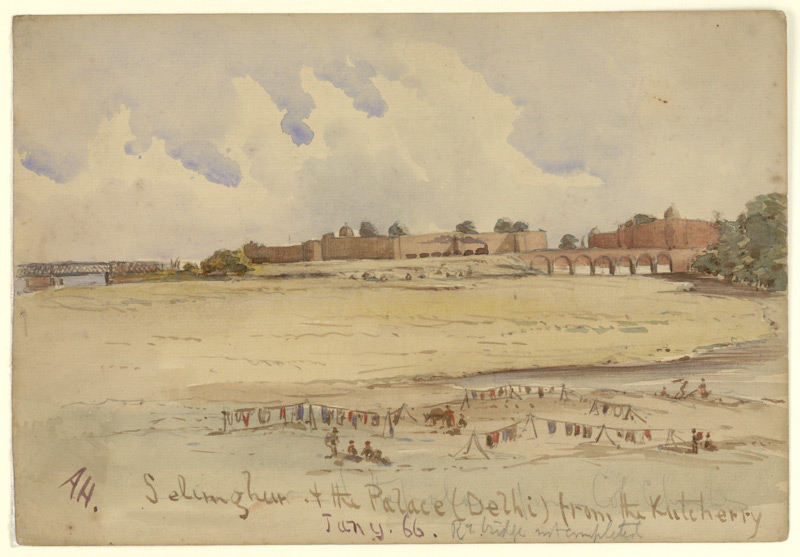 AH.
Selimghur & the Palace (Delhi) from the Kutcherry
Jany. 66. Ry. bridge not completed